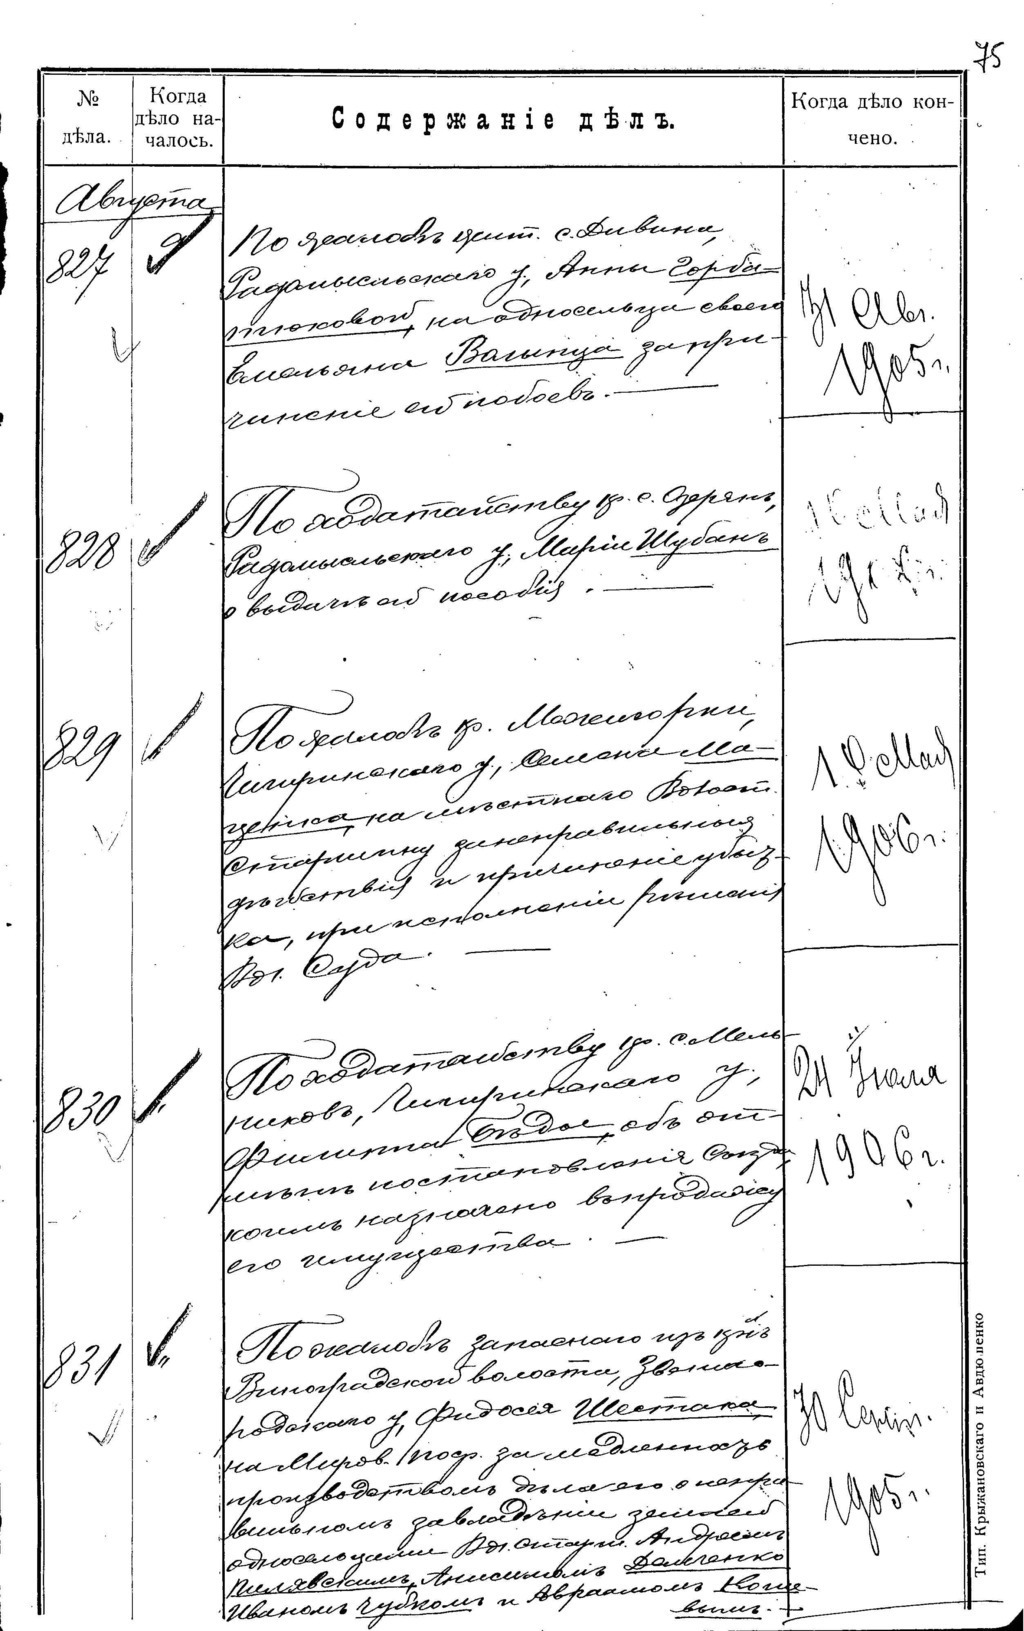 75
№ дѣла.
Когда дѣло началось.
Содержаніе дѣлъ.
Когда дѣло кончено.
Августа
827
9
По жалобѣ жит. с. Дивина,
Радомысльскаго у., Анны Горба-
тюковой, на односельца своего
Емельяна за при-
чиненіе ей побоевъ. —
31 Авг.
1905 г.
828
По ходатайству кр. с.
Радомысльскаго у., Маріи Шубанъ
о выдачѣ ей пособія. —
829
По жалобѣ кр. Межигорки,
Чигиринскаго у., Семена Ма-
ценка, на мѣстнаго Волост.
Старшину за неправильныя
дѣйствія и причиненіе убыт-
ка, при исполненіи рѣшенія
Вол. Суда. —
10 Мая
1906 г.
830
По ходатайству кр. с. Мель-
никовъ, Чигиринскаго у.,
Филиппа Бѣдое, объ от-
мѣнѣ постановленія Съѣзда,
коимъ назначено въ продажу
его имущества. —
24 Іюля
1906 г.
831
По жалобѣ запаснаго изъ кр-нъ
Виноградской волости, Звениго-
родскаго у., Фидосея Шестака,
на Миров. Поср. за медленность
производствомъ дѣла его о непра-
вильномъ завладѣніи землей
односельцами Вол. Старш. Андреемъ
Пилявскимъ, Анисимомъ Демченко
Иваномъ Чубкомъ и Авраамомъ Коше-
вымъ. —
30 Сентяб.
1905 г.
Тип. Крыжановскаго и Авдюшенко